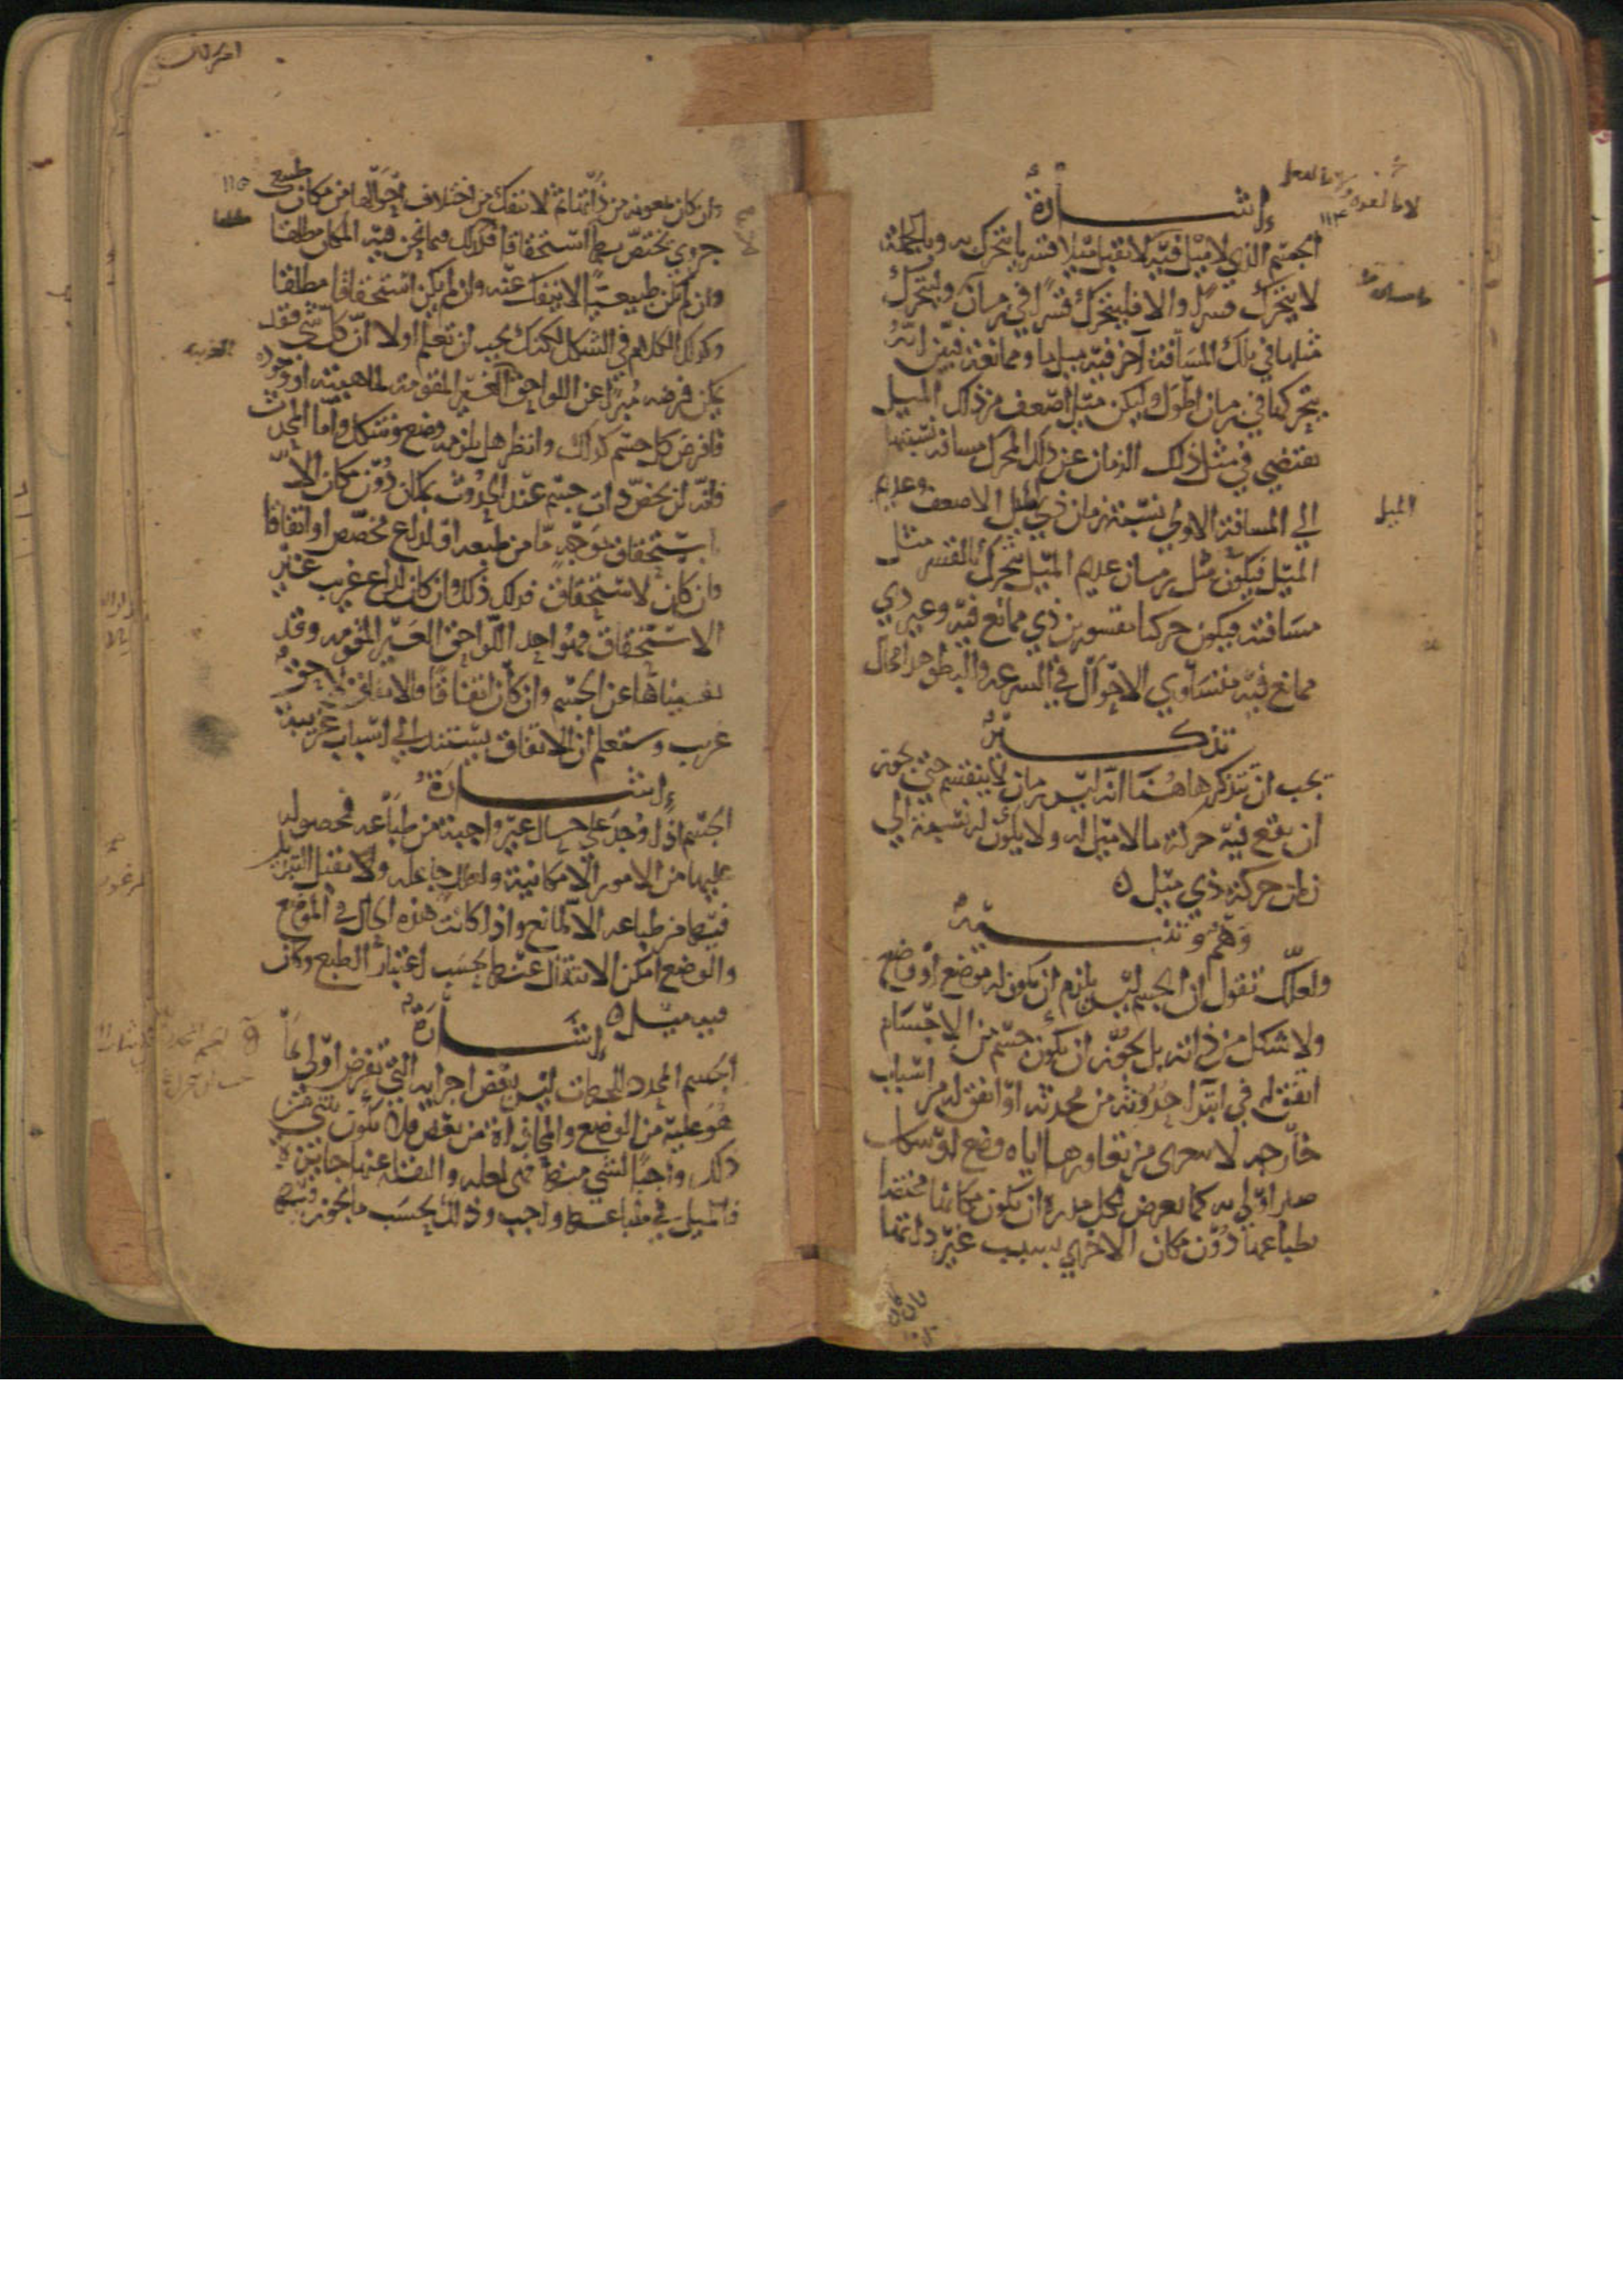 إشارة
الجسم الذي لا ميل فيه لا يقبل ميلا قسريا يتحرك به وبالجملة
لا يتحرك قسرا والا فليتحرك قسرا في زمان وليتحرك
مثلها في تلك المسافة آخر فيه ميل ما وممانعة فبين انه
يتحركها في زمان اطول وليكن ميل اضعف من ذلك الميل
يقتضي في مثل ذلك الزمان عن ذلك المحرك مسافة نسبتها
الي المسافة الاولي نسبة زمان ذي الميل الاضعف وعديم
الميل فيكون مثل زمان عديم الميل يتحرك بالقسر مثل
مسافته فيكون حركتا مقسورين ذي ممانع فيه وغير ذي
ممانع فيه متساوي الاحوال في السرعة والبطو هذا محال
تذكير
يجب ان تتذكر هاهنا انه ليس زمان لا ينقسم حتي يجوز
ان يقع فيه حركة ما لا ميل له ولا يكون له نسبة الي
زمان حركة ذي ميل ه
وهم وتنبيه
ولعلك تقول ان الجسم ليس يلزم ان يكون له موضع او وضع
ولا شكل من ذاته بل يجوز ان يكون جسم من الاجسام
اتفق له في ابتدا حدوثه من محدثه او اتفق له من اسباب
خارجه لا يتعرى من تعاورها اياه وضع او شكل
صار اولى به كما يعرض لكل مدرة ان يكون مكانها مختصا
بطباعها دون مكان الاخري بسبب غير ذاتها
وان كان بمعونة من ذاتها ثم لا تنفك من اختلاف احوالها من مكان طبيعي
جزوي يختص بها استحقاقا فكذلك فيما نحن فيه المكان مطلقا
وان لم يكن طبيعيا لا ينفك عنه وان لم يكن استحقاقا مطلقا
وكذلك الكلام في الشكل لكنك يجب ان تعلم اولا ان كل شي فقد
يمكن فرضه مبرا عن اللواحق الغير المقومة لماهيته او وجوده
فافرض كل جسم كذلك وانظر هل يلزمه وضع وشكل واما المحدث
فانه لن يخص ذات جسم عند الحدوث بمكان دون مكان الا
باستحقاق بوجه ما من طبعه او لداع مخصص او اتفاقا
وان كان لاستحقاق فذلك ذلك وان كان لداع غريب غير
الاستحقاق فهو احد اللواحق الغير المقومة وقد
نفيناها عن الجسم وان كان اتفاقا فالاتفاق لاحق
غريب وستعلم ان الاتفاق يستند الي اسباب غريبة
إشارة
الجسم اذا وجد علي حال غير واجبة من طباعه فحصوله
عليها من الامور الامكانية ولعلل جاعله ولا يقبل التبديل
فيها من طباعه الا لمانع واذا كانت هذه الحال في الموضع
والوضع امكن الانتقال عنها بحسب اعتبار الطبع وكان
فيه ميل ه
إشارة
الجسم المحدد للجهات ليس بعض اجزايه التي تفرض اولى بما
هو عليه من الوضع والمحاذاة من بعض فلا يكون شي من
ذلك واجبا لشي منها فهي لعلة والنقلة عنها جايزة
فالميل في طباعها واجب وذلك بحسب ما يجوز فيها